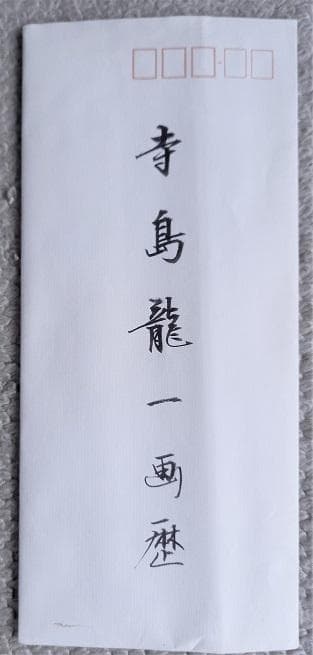 寺島龍一画歴